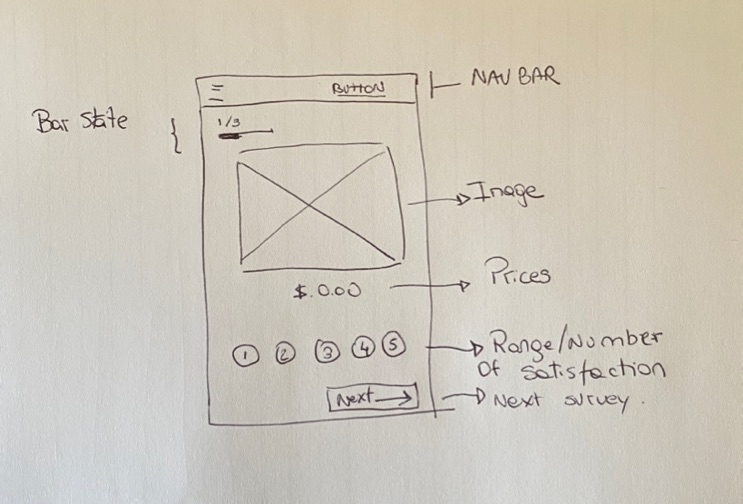 BUTTON
NAV BAR
Bar State
1/3
Image
$.0.00
Prices
1 2 3 4 5
Range/Number
Of Satisfaction
Next
Next survey.